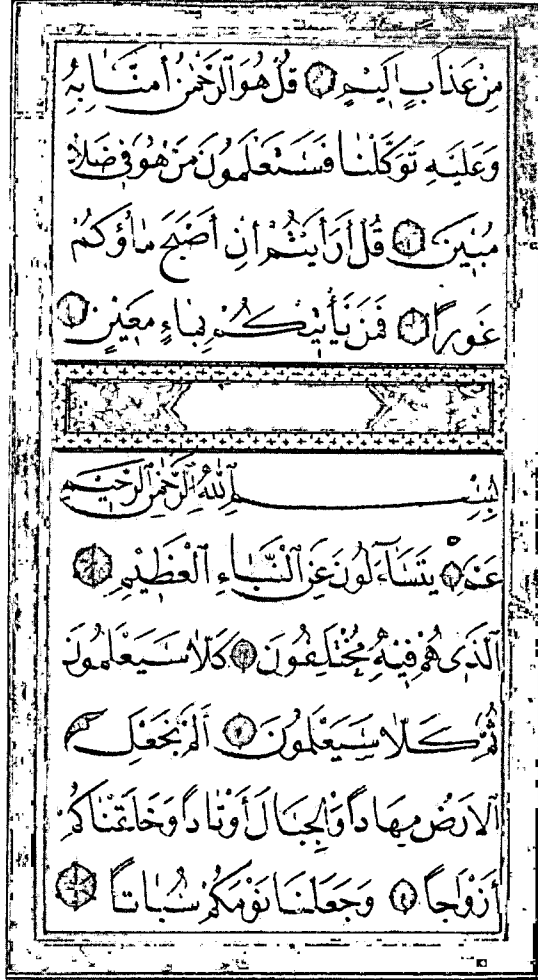 مِنْ عَذَابٍ اَلِيْمٍ قُلْ هُوَ الرَّحْمٰنُ اٰمَنَّا بِهٖ
وَعَلَيْهِ تَوَكَّلْنَا فَسَتَعْلَمُونَ مَنْ هُوَ فِي ضَلَالٍ
مُبِيْنٍ قُلْ أَرَأَيْتُمْ اِنْ أَصْبَحَ مَاؤُكُمْ
غَوْرًا فَمَنْ يَأْتِيْكُمْ بِمَاءٍ مَعِيْنٍ
بِسْمِ اللّٰهِ الرَّحْمٰنِ الرَّحِيْمِ
عَمَّ يَتَسَآءَلُونَ عَنِ النَّبَاءِ الْعَظِيْمِ
الَّذِي هُمْ فِيْهِ مُخْتَلِفُونَ كَلَّا سَيَعْلَمُونَ
ثُمَّ كَلَّا سَيَعْلَمُونَ اَلَمْ نَجْعَلِ
الْاَرْضَ مِهَادًا وَالْجِبَالَ أَوْتَادًا وَخَلَقْنَاكُمْ
أَزْوَاجًا وَجَعَلْنَا نَوْمَكُمْ سُبَاتًا